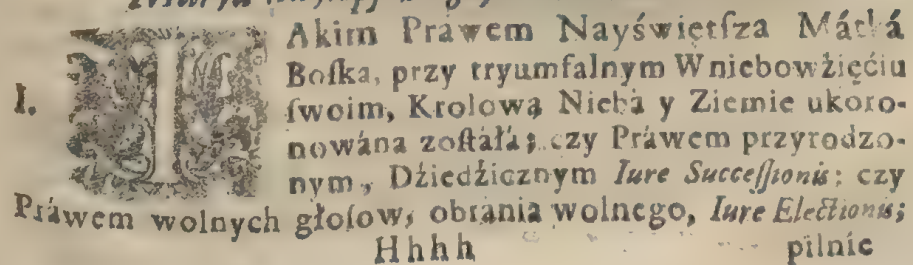 I. IAkim Práwem Nayświętſza Mátká
Boſka, przy tryumfalnym Wniebowźięćiu
ſwoim, Krolową Nieba y Ziemie ukoro-
nowána zoſtáłá; czy Práwem przyrodzo-
nym, Dźiedźicznym Iure Succeſſionis; czy
Práwem wolnych głoſow, obrania wolnego, Iure Electionis;
Hhhh pilnie